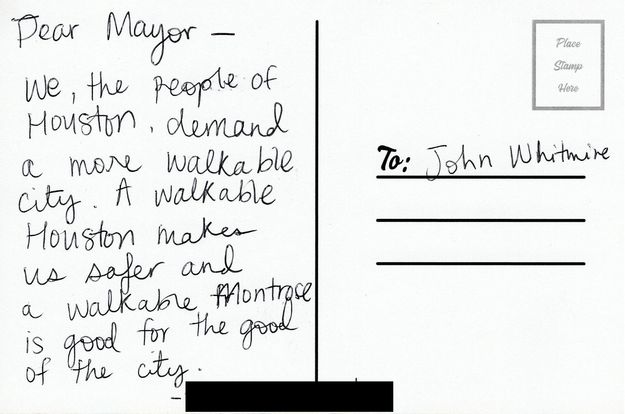 Dear Mayor —
We, the people of
Houston, demand
a more walkable
city. A walkable
Houston makes
us safer and
a walkable Montrose
is good for the good
of the city.
-
Place
Stamp
Here
To: John Whitmire